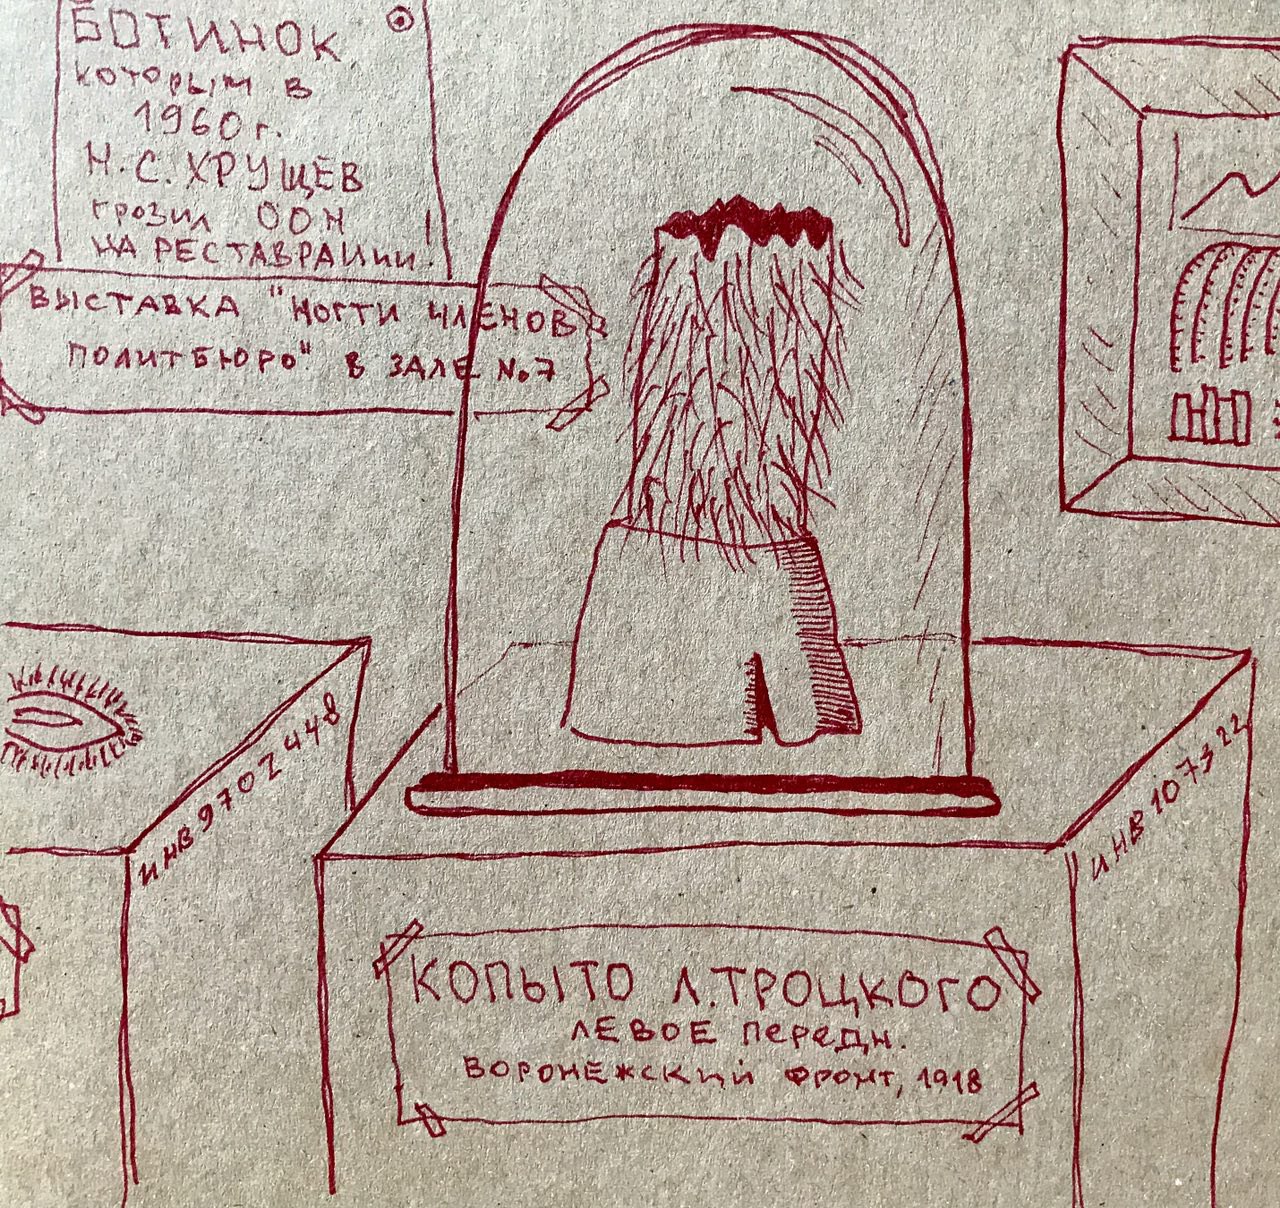 БОТИНОК
которым в
1960 г.
Н.С. ХРУЩЁВ
грозил ООН
НА РЕСТАВРАЦИИ!
ВЫСТАВКА "НОГТИ ЧЛЕНОВ
ПОЛИТБЮРО" В ЗАЛЕ №7
ИНВ 970Z448
ИНВ 107322
КОПЫТО Л.ТРОЦКОГО
ЛЕВОЕ Передн.
ВОРОНЕЖСКИЙ ФРОНТ, 1918